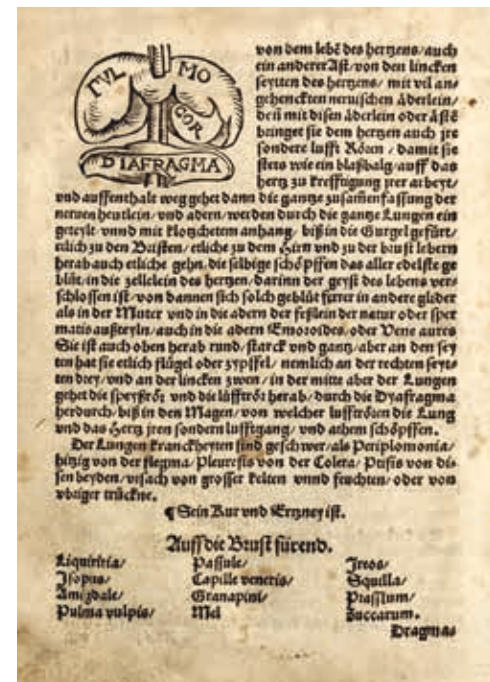 PVL MO
COR
DIAFRAGMA
von dem lebē des hertzens/auch
ein anderer Ast/von den lincken
seytten des hertzens/mit vil an-
gehenckten neruischen åderlein/
deñ mit disen åderlein oder åstē
bringet sie dem hertzen auch jre
sondere lufft Rôren/damit sie
stets wie ein blaßbalg/auff das
hertz zu kreffrigung jrer arbeyt/
vnd auffenthalt weg gehet dann die gantze zusam̃enfassung der
neruen heutlein/vnd adern/werden durch die gantze Lungen ein
geteylt/vnnd mit klotzchetem anhang/biß in die Gurgel gefürt/
etlich zu den Brüsten/etliche zu dem Hirn vnd zu der brust lebern
herab auch etliche gehn/die selbige schôpffen das aller edelste ge
blüt/in die zellelein des hertzen/darinn der geyst des lebens ver-
schlossen ist/von dannen sich solch geblüt ferrer in andere glider
als in der Muter vnd in die adern der feßlein der natur oder sper
matis außteyln/auch in die adern Emoroides/oder Vene aures
Sie ist auch oben herab rund/starck vnd gantz/aber an den sey
ten hat sie etlich flügel oder zypffel/nemlich an der rechten seyt-
ten drey/vnd an der lincken zwen/in der mitte aber der Lungen
gehet die speyßrôr vnd die lufftrôr herab/durch die Dyafragma
herdurch/biß in den Magen/von welcher lufftrôren die Lung
vnd das Hertz jren sondern lufftgang/vnd athem schôpffen.
Der Lungen kranckheyten sind geschwer/als Periplomonia/
hitzig von der flegma/Pleuresis von der Colera/Ptisis von di-
sen beyden/vrsach von grosser kelten vnnd feuchten/oder von
vbriger trückne.
¶ Sein Kur vnd Ertzney ist.
Auff die Brust fürend.
Liquiritia/ Passule/ Jreos/
Jsopus/ Capille veneris/ Squilla/
Amigdale/ Granapini/ Prassium/
Pulma vulpis/ Mel Zuccarum.
Dragmas